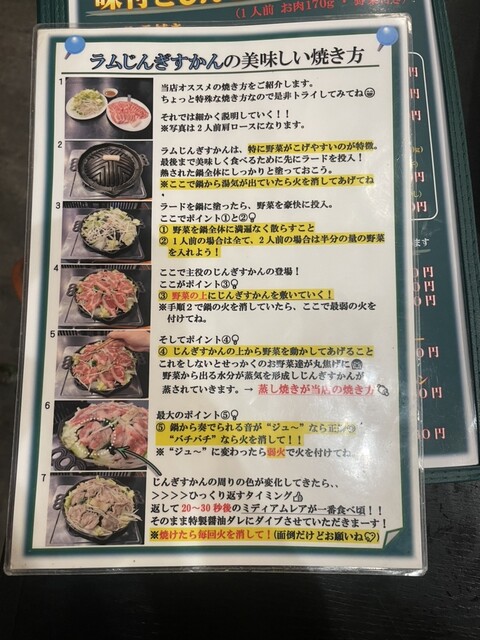 味付じん
(1人前 お肉170g・野菜
ラムじんぎすかんの美味しい焼き方
1
当店オススメの焼き方をご紹介します。
ちょっと特殊な焼き方なので是非トライしてみてね😄
それでは細かく説明していく！！
※写真は２人前肩ロースになります。
2
ラムじんぎすかんは、特に野菜がこげやすいのが特徴。
最後まで美味しく食べるために先にラードを投入！
熱された鍋全体にしっかりと塗っておこう。
※ここで鍋から湯気が出ていたら火を消してあげてね
・
3
ラードを鍋に塗ったら、野菜を豪快に投入。
ここでポイント①と②💡
① 野菜を鍋全体に満遍なく散らすこと
② １人前の場合は全て、２人前の場合は半分の量の野菜
を入れよう！
4
ここで主役のじんぎすかんの登場！
ここがポイント③💡
③ 野菜の上にじんぎすかんを敷いていく！
※手順２で鍋の火を消していたら、ここで最弱の火を
付けてね。
5
そしてポイント④💡
④ じんぎすかんの上から野菜を動かしてあげること
これをしないとせっかくのお野菜達が丸焦げに
野菜から出る水分が蒸気を形成しじんぎすかんが
蒸されていきます。→ 蒸し焼きが当店の焼き方
6
最大のポイント⑤💡
⑤ 鍋から奏でられる音が“ジュ～”なら正
“バチバチ”なら火を消して！！
※“ジュ～”に変わったら弱火で火を付けてね。
7
じんぎすかんの周りの色が変化してきたら、、
>>>>>ひっくり返すタイミング👍
返して20～30秒後のミディアムレアが一番食べ頃！！
そのまま特製醤油ダレにダイブさせていただきまーす！
※焼けたら毎回火を消して！(面倒だけどお願いね♡)
円
円
円
円
円
円
円
円